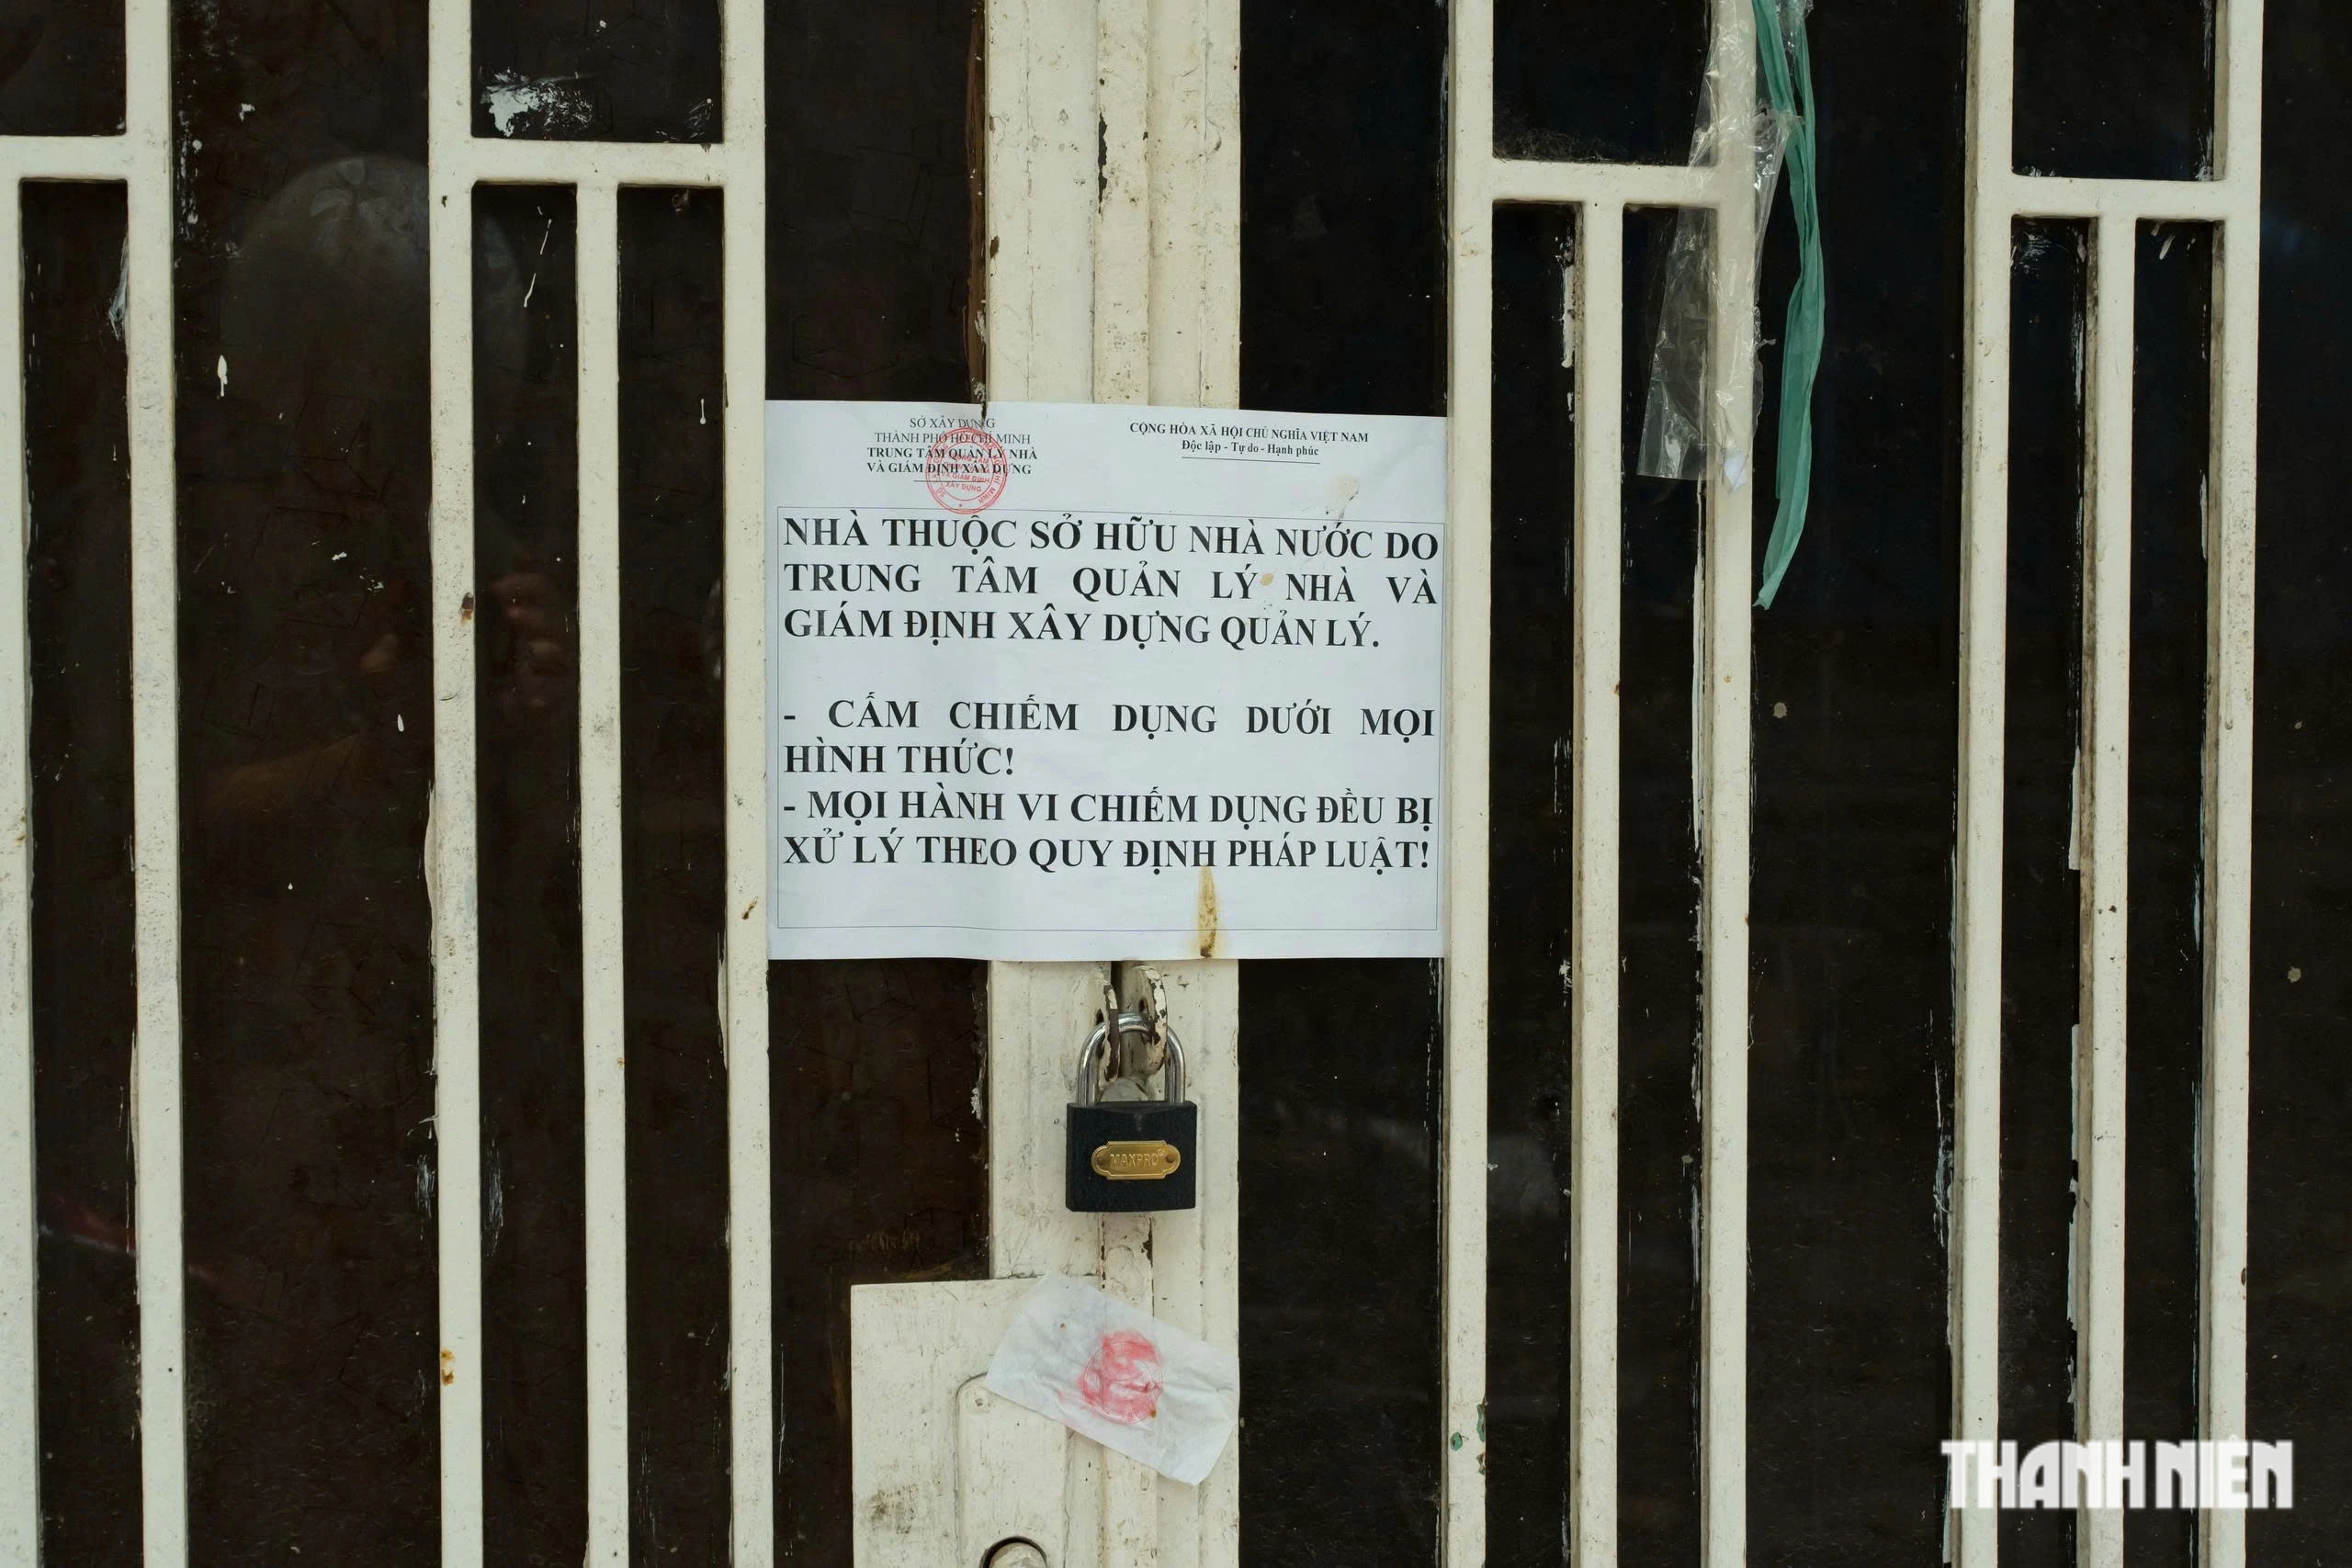 SỞ XÂY DỰNG
THÀNH PHỐ HỒ CHÍ MINH
TRUNG TÂM QUẢN LÝ NHÀ
VÀ GIÁM ĐỊNH XÂY DỰNG
CỘNG HÒA XÃ HỘI CHỦ NGHĨA VIỆT NAM
Độc lập - Tự do - Hạnh phúc
NHÀ THUỘC SỞ HỮU NHÀ NƯỚC DO
TRUNG TÂM QUẢN LÝ NHÀ VÀ
GIÁM ĐỊNH XÂY DỰNG QUẢN LÝ.
- CẤM CHIẾM DỤNG DƯỚI MỌI
HÌNH THỨC!
- MỌI HÀNH VI CHIẾM DỤNG ĐỀU BỊ
XỬ LÝ THEO QUY ĐỊNH PHÁP LUẬT!
MAXPRO
THANH NIÊN